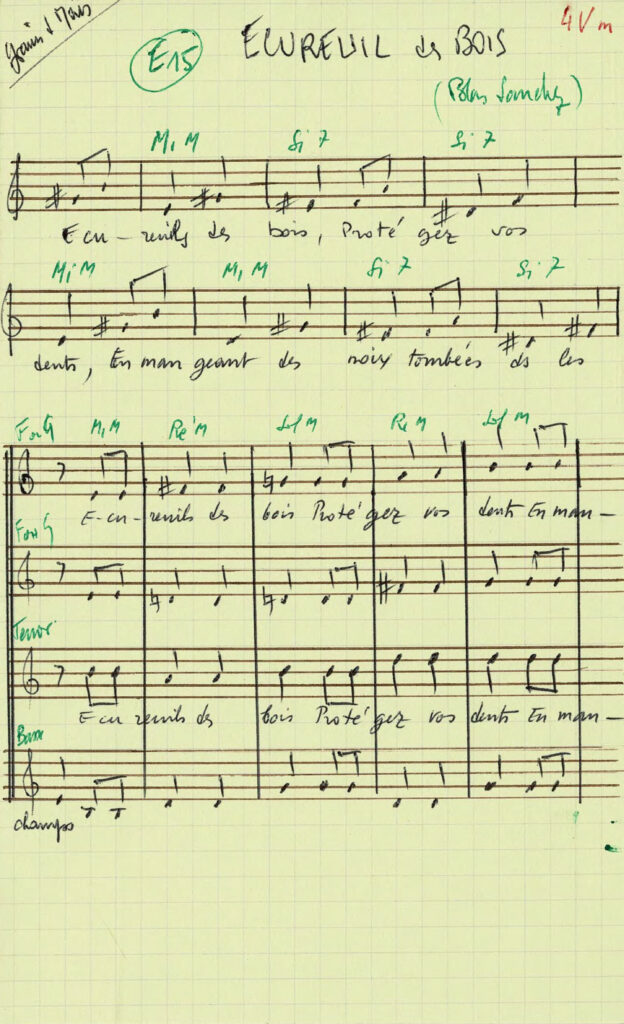 E15
ECUREUIL des BOIS
4V m
(Blas Sanchez)
Mi M Si 7 Si 7
Ecu-reuils des bois, Proté gez vos
Mi M Mi M Si 7 Si 7
dents, En man geant des noix tombées ds les
Mi M Ré M Sol M Re M Sol M
E-cu-reuils des bois Proté gez vos dents En man-
Tenor
E cu reuils des bois Proté gez vos dents En man-
Basse
champs